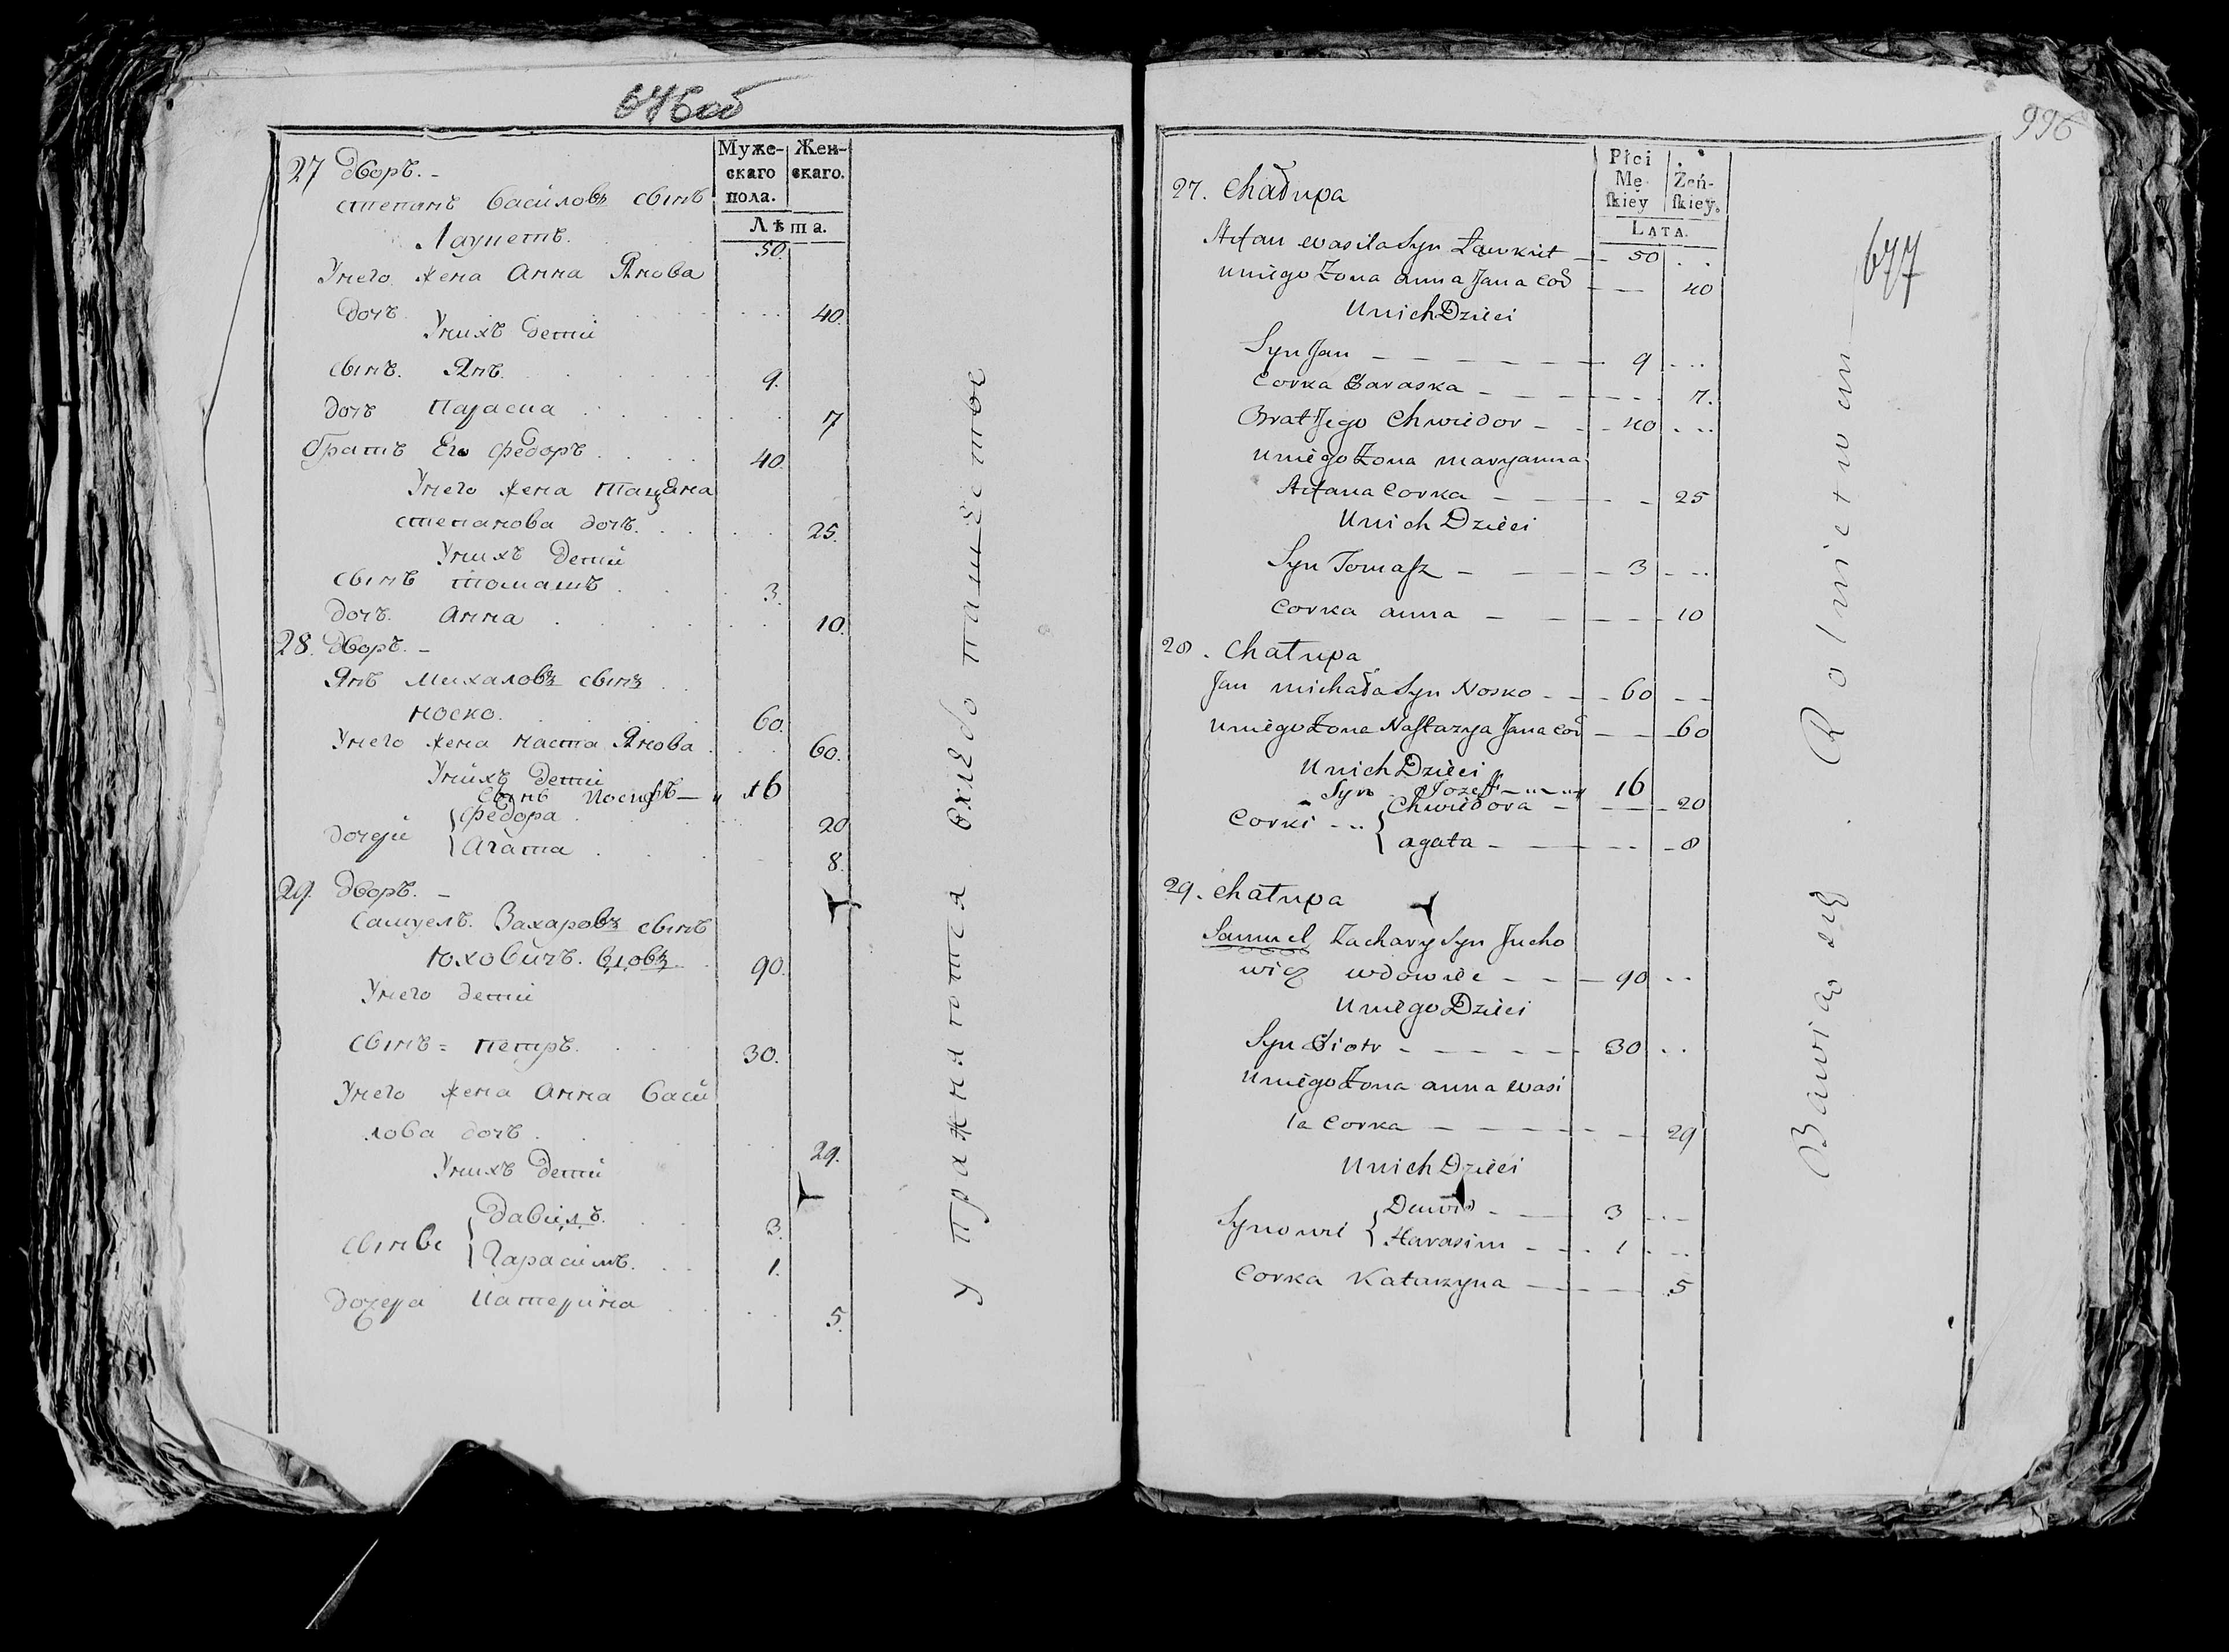 646 об
Муже-
скаго
пола.
Жен-
скаго.
Лѣта.
27 дворъ. -
степанъ василовъ сынъ
Лаукетъ. 50.
Унего жена Анна Янова
дочь. 40.
Унихъ дети
сынъ. Янъ. 9.
дочь Параска 7
братъ Его федоръ 40.
Унего жена
степанова дочь. 25.
Унихъ дети
сынъ томашъ 3.
дочь. Анна 10.
28. дворъ. -
Янъ Михаловъ сынъ
носко. 60.
Унего жена наста Янова 60.
Унихъ дети
сынъ иосифъ — „ 16
дочери { федора 20
{ Агата 8.
29. дворъ. -
самуелъ. Захаровъ сынъ
юховичъ. 90.
Унего дети
сынъ = петръ. 30.
Унего жена Анна васи
лова дочь. 29.
Унихъ дети
сынве { давидъ. 3.
{ Гарасимъ. 1.
дочера катерина 5.
Упражняются вхлебопашестве
996
677
Płci
Mę
ſkiey
Żeń-
ſkiey.
LATA.
27. Chałupa
Stefan wasila Syn Lawkiet — 50
uniego Zona anna Jana cor — 40
Unich Dzieci
Syn Jan — 9
Corka Paraska — 7.
Brat Jego Chwiedor — 40
uniego Zona maryanna
Stefana Corka — 25
Unich Dzieci
Syn Tomaſz — 3
Corka anna — 10
28. Chałupa
Jan michała Syn Nosko — 60
uniego Zona Naſtazya Jana cor — 60
Unich Dzieci
Syn Jozeff — 16
Corki { Chwiedora — 20
{ agata — 8
29. Chałupa
Samuel Zachary Syn Jucho
wicz wdowiec — 90
Uniego Dzieci
Syn Piotr — 30
Uniego Zona anna wasi
la Corka — 29
Unich Dzieci
Synowie { Dawid — 3
{ Harasim — 1
Corka Katarzyna — 5
Bawią się Rolnictwem